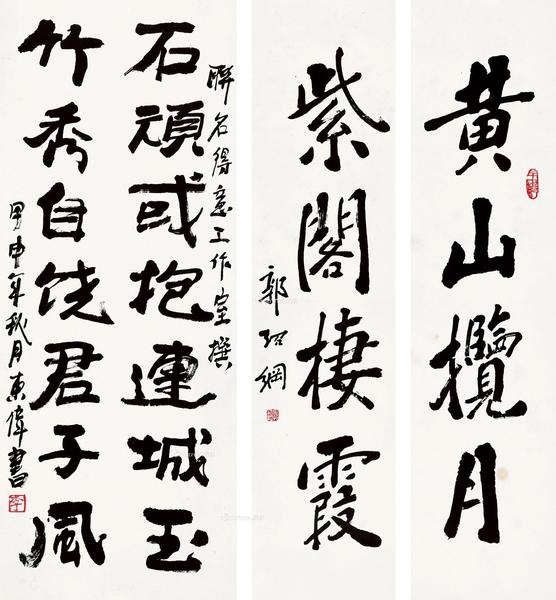 黄山攬月
紫閣棲霞
郭绍綱
聯名得意工作室撰
石頑或抱連城玉
竹秀自饶君子風
甲申年秋月東偉書